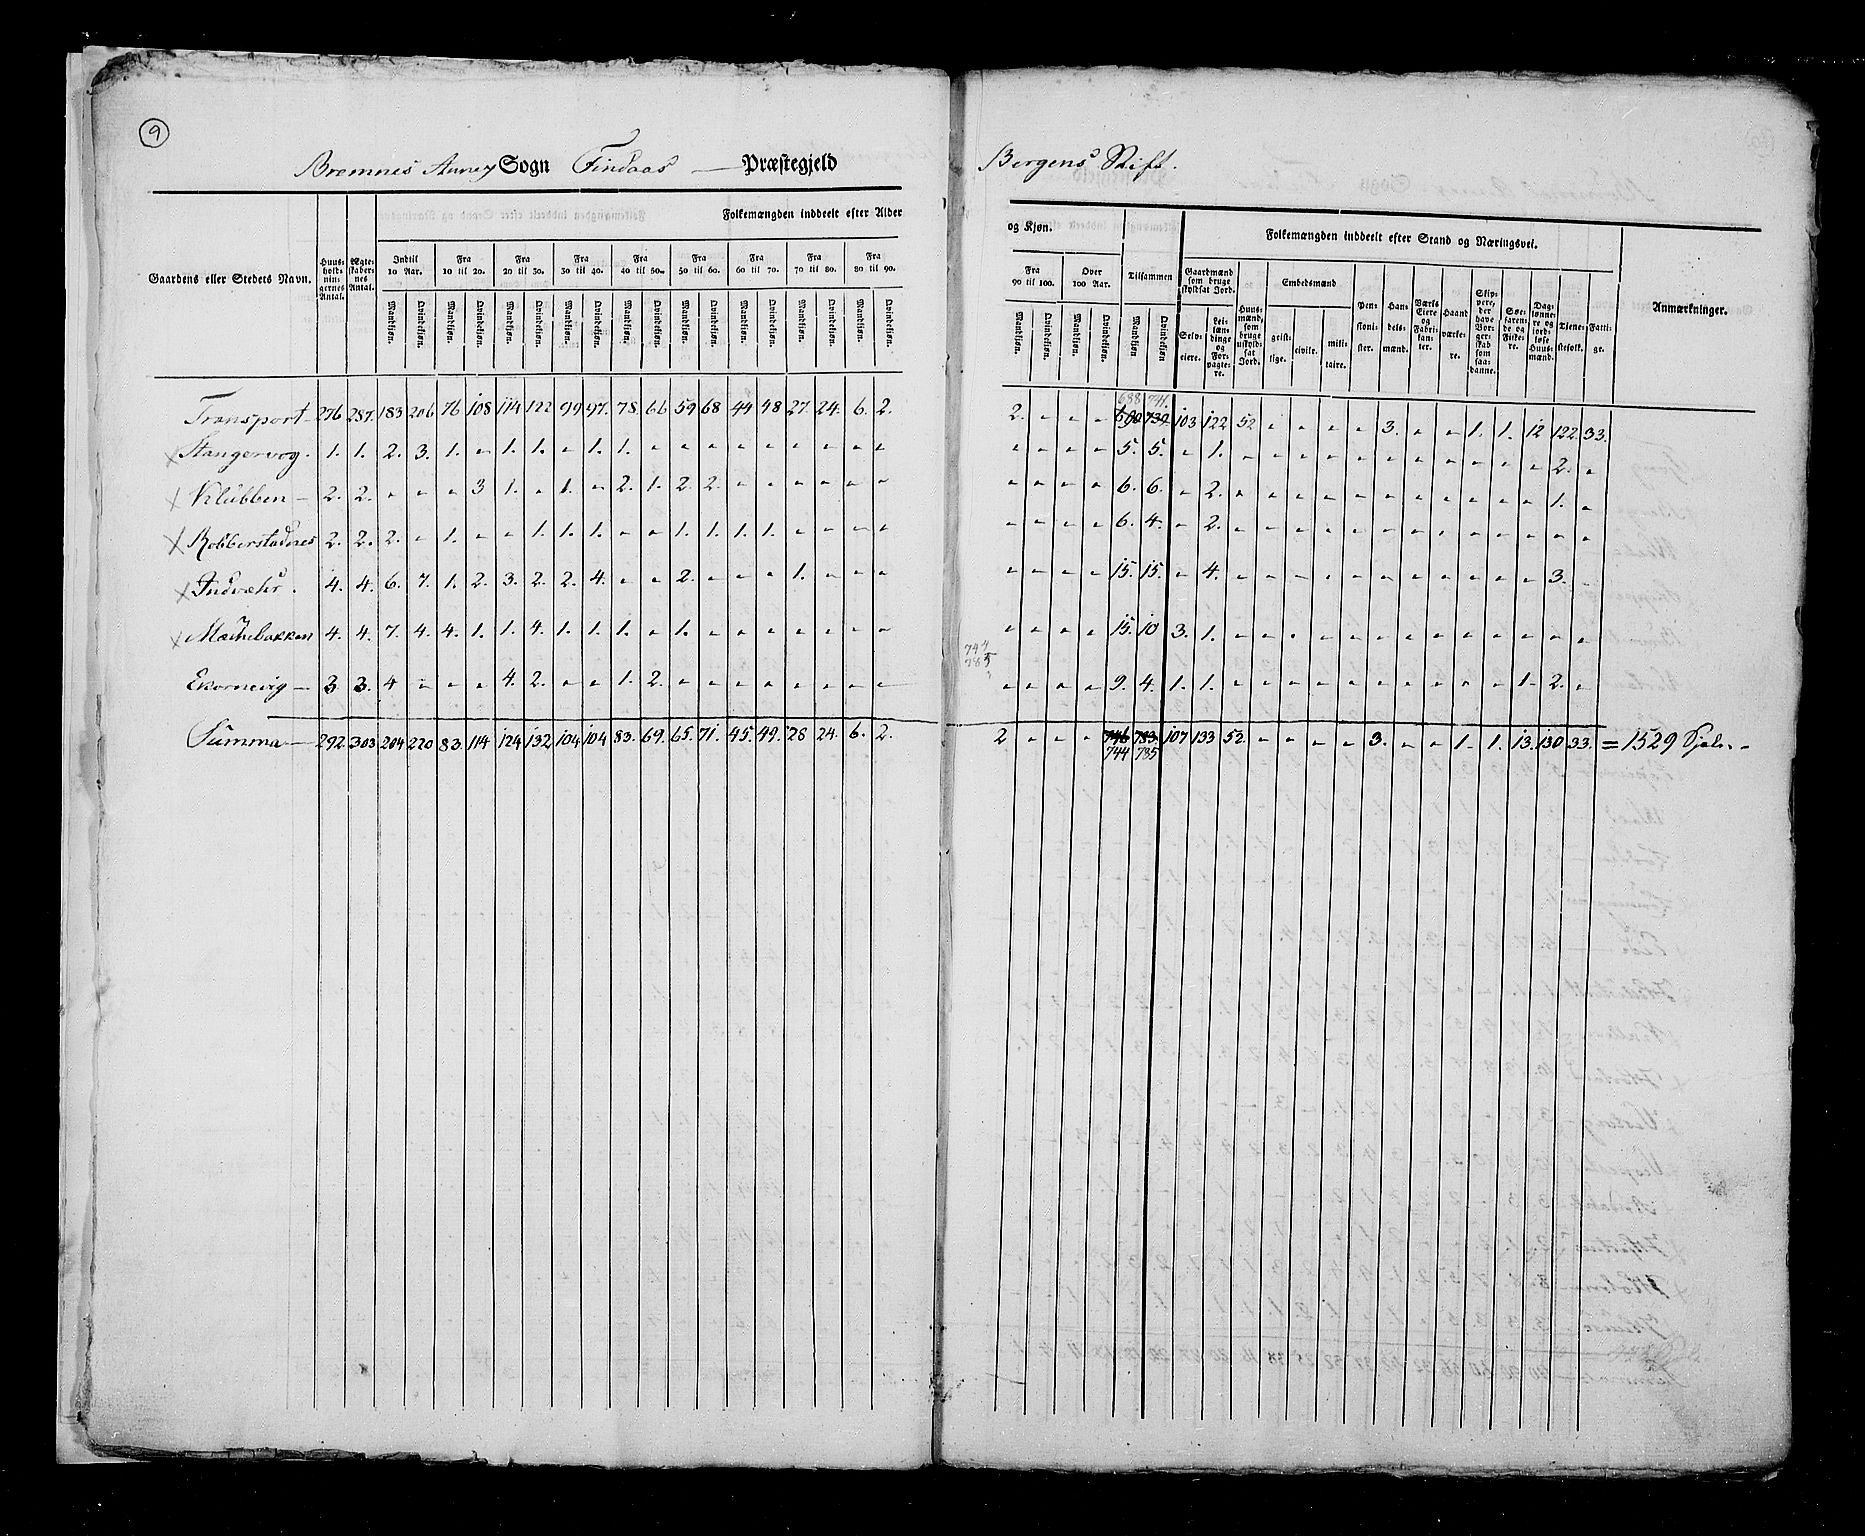 9
Bremnes Annex Sogn Findaas — Præstegjeld
Bergens Stift.
Gaardens eller Stedets Navn.
Huus-holdnin-gernes Antal.
Ægte-skaber-nes Antal.
Folkemængden inddeelt efter Alder
og Kjøn.
Indtil 10 Aar. Fra 10 til 20. Fra 20 til 30. Fra 30 til 40. Fra 40 til 50. Fra 50 til 60. Fra 60 til 70. Fra 70 til 80. Fra 80 til 90. Fra 90 til 100. Over 100 Aar. Tilsammen
Mandkjøn. Qvindekjøn. Mandkjøn. Qvindekjøn. Mandkjøn. Qvindekjøn. Mandkjøn. Qvindekjøn. Mandkjøn. Qvindekjøn. Mandkjøn. Qvindekjøn. Mandkjøn. Qvindekjøn. Mandkjøn. Qvindekjøn. Mandkjøn. Qvindekjøn. Mandkjøn. Qvindekjøn. Mandkjøn. Qvindekjøn. Mandkjøn Qvindekjøn
Folkemængden inddeelt efter Stand og Næringsvei.
Gaardmænd som bruge skyldsat Jord.
Selv-eiere.
Lei-læn-dinge og For-pagte-re.
Huus-mænd, som bruge uskyld-sat Jord.
Embedsmænd
geist-lige. civile. mili-taire.
Pen-sioni-ster.
Han-dels-mænd.
Værks Eiere og Fabri-kan-ter.
Haand værke-re.
Skip-pere, der have Bor-ger-skab som saa-danne.
Søe-farende og Fiske-re.
Dag-lønne-re og jord-løse Huus-mænd.
Tjene-stefolk.
Fatti-ge.
Anmærkninger.
688 741.
Transport 276 287. 183 206 76 108 114 122 99 97. 78. 66 59 68 44 48 27. 24. 6. 2. 2. " " " 690 739 103 122 52 " " " " 3. " " 1. 1. 12 122. 33.
Stangervog. 1. 1. 2. 3. 1. " 1. 1. " 1. 1. " " " " " " " " " " " " " 5. 5. " 1. " " " " " " " " " " " 2. "
Klubben 2. 2. " " " 3 1. " 1. " 2. 1. 2. 2. " " " " " " " " " " 6. 6. " 2. " " " " " " " " " " " 1. "
Robberstadnes 2. 2. 2. " 1. " " 1. 1. 1. " 1. 1. 1. 1. " " " " " " " " 6. 4. " 2. " " " " " " " " " " " " "
Indvæhr. 4. 4. 6. 7. 1. 2. 3. 2. 2. 4. " " 2. " " " 1. " " " " " " " 15. 15. " 4. " " " " " " " " " " " 3. "
Mæhlebakken 4. 4. 7. 4. 4. 1. 1. 4. 1. 1. 1. " 1. " " " " " " " " " " " 15. 10 3. 1. " " " " " " " " " " " " "
744
785
Ekornevig 3 3. 4 " " " 4. 2. " " 1. 2. " " " " " " " " " " " " 9. 4. 1. 1. " " " " " " " " " " 1. 2. "
Summa 292. 303 204 220 83. 114 124 132 104 104 83. 69. 65. 71. 45. 49. 28 24. 6. 2. 2 " " " 746 783. 107 133 52. " " " " 3. " " 1. 1. 13. 130 33. = 1529 Sjæle.
744 785